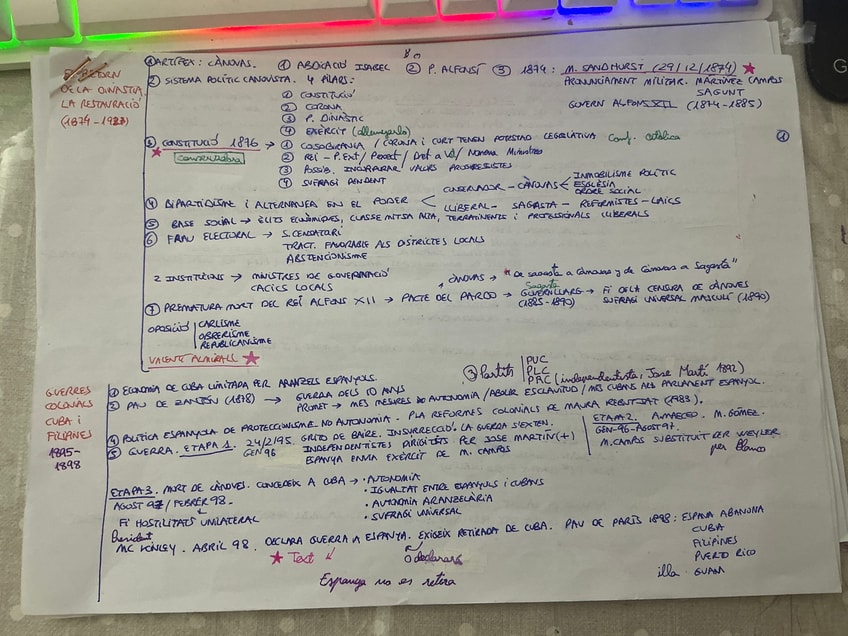 EL RETORN
DE LA DINASTIA
LA RESTAURACIÓ
(1874-1923)
① ARTÍFEX: CÀNOVAS. ① ABDICACIÓ ISABEL ② P. ALFONSÍ ③ 1874: M. SANDHURST (29/12/1874) ★
PRONUNCIAMENT MILITAR. MARTÍNEZ CAMPOS
SAGUNT
GOVERN ALFONS XII (1874-1885)
② SISTEMA POLÍTIC CANOVISTA. 4 PILARS:
① CONSTITUCIÓ
② CORONA
③ P. DINÀSTIC
④ EXÈRCIT
③ CONSTITUCIÓ 1876 → ① COSOBIRANIA / CORONA I CORT TENEN POTESTAD LEGISLATIVA Conf. Catòlica
★ conservadora
② REI - P. Ext / P. exect / Dret a Vet / Nomena Ministres
③ POSSIB. INCORPORAR VALORS PROGRESSISTES
④ SUFRAGI PENDENT
①
④ BIPARTIDISME I ALTERNANÇA EN EL PODER < CONSERVADOR - CÀNOVAS < INMOBILISME POLÍTIC
ESGLÉSIA
ORDRE SOCIAL
LLIBERAL - SAGASTA - REFORMISTES - LAICS
⑤ BASE SOCIAL → ÈLITS ECONÒMIQUES, CLASSE MITJA ALTA, TERRATINENTS I PROFESSIONALS LLIBERALS
⑥ FRAU ELECTORAL → S. CENSATARI
TRACT. FAVORABLE ALS DISTRICTES LOCALS
ABSTENCIONISME
2 INSTITUCIONS → MINISTRES DE GOVERNACIÓ
CACICS LOCALS
CÀNOVAS → "De sagasta a Cánovas y de Cánovas a Sagasta"
⑦ PREMATURA MORT DEL REI ALFONS XII → PACTE DEL PARDO → Sagasta
GOVERN LLARG → FI DE LA CENSURA DE CÀNOVES
(1885-1890) SUFRAGI UNIVERSAL MASCULÍ (1890)
OPOSICIÓ CARLISME
OBRERISME
REPUBLICANISME
VALENTÍ ALMIRALL ★
GUERRES
COLONIALS
CUBA I
FILIPINES
1895-
1898
① ECONOMIA DE CUBA LIMITADA PER ARANZELS ESPANYOLS.
③ Partits PUC
PLC
PRC (independentista, Jose Martí 1892)
② PAU DE ZANJÓN (1878) → GUERRA DELS 10 ANYS
PROMET → MÉS MESURES DE AUTONOMIA / ABOLIR ESCLAVITUD / MÉS CUBANS AL PARLAMENT ESPANYOL.
④ POLÍTICA ESPANYOLA DE PROTECCIONISME. NO AUTONOMIA. PLA REFORMES COLONIALS DE MAURA REBUTJAT (1983).
⑤ GUERRA. ETAPA 1. 24/2/95. GRITO DE BAIRE. INSURRECCIÓ. LA GUERRA S'EXTEN.
GEN 96 INDEPENDENTISTES DIRIGITS PER JOSE MARTÍN (+)
ESPANYA ENVIA EXÈRCIT DE M. CAMPOS
ETAPA-2. A. MACEO. M. GÓMEZ.
GEN-96-AGOST 97.
M. CAMPOS SUBSTITUIT PER WEYLER
per Blanco
ETAPA-3. MORT DE CÀNOVES. CONCEDEIX A CUBA → · AUTONOMIA
AGOST 97 / FEBRER 98. · IGUALTAT ENTRE ESPANYOLS I CUBANS
· AUTONOMIA ARANZELÀRIA
FI HOSTILITATS UNILATERAL · SUFRAGI UNIVERSAL
President
MC KINLEY. ABRIL 98. DECLARA GUERRA A ESPANYA. EXIGEIX RETIRADA DE CUBA. PAU DE PARÍS 1898: ESPANYA ABANONA
CUBA
FILIPINES
PUERTO RICO
illa · GUAM
★ Text
O declararà
Espanya no es retira